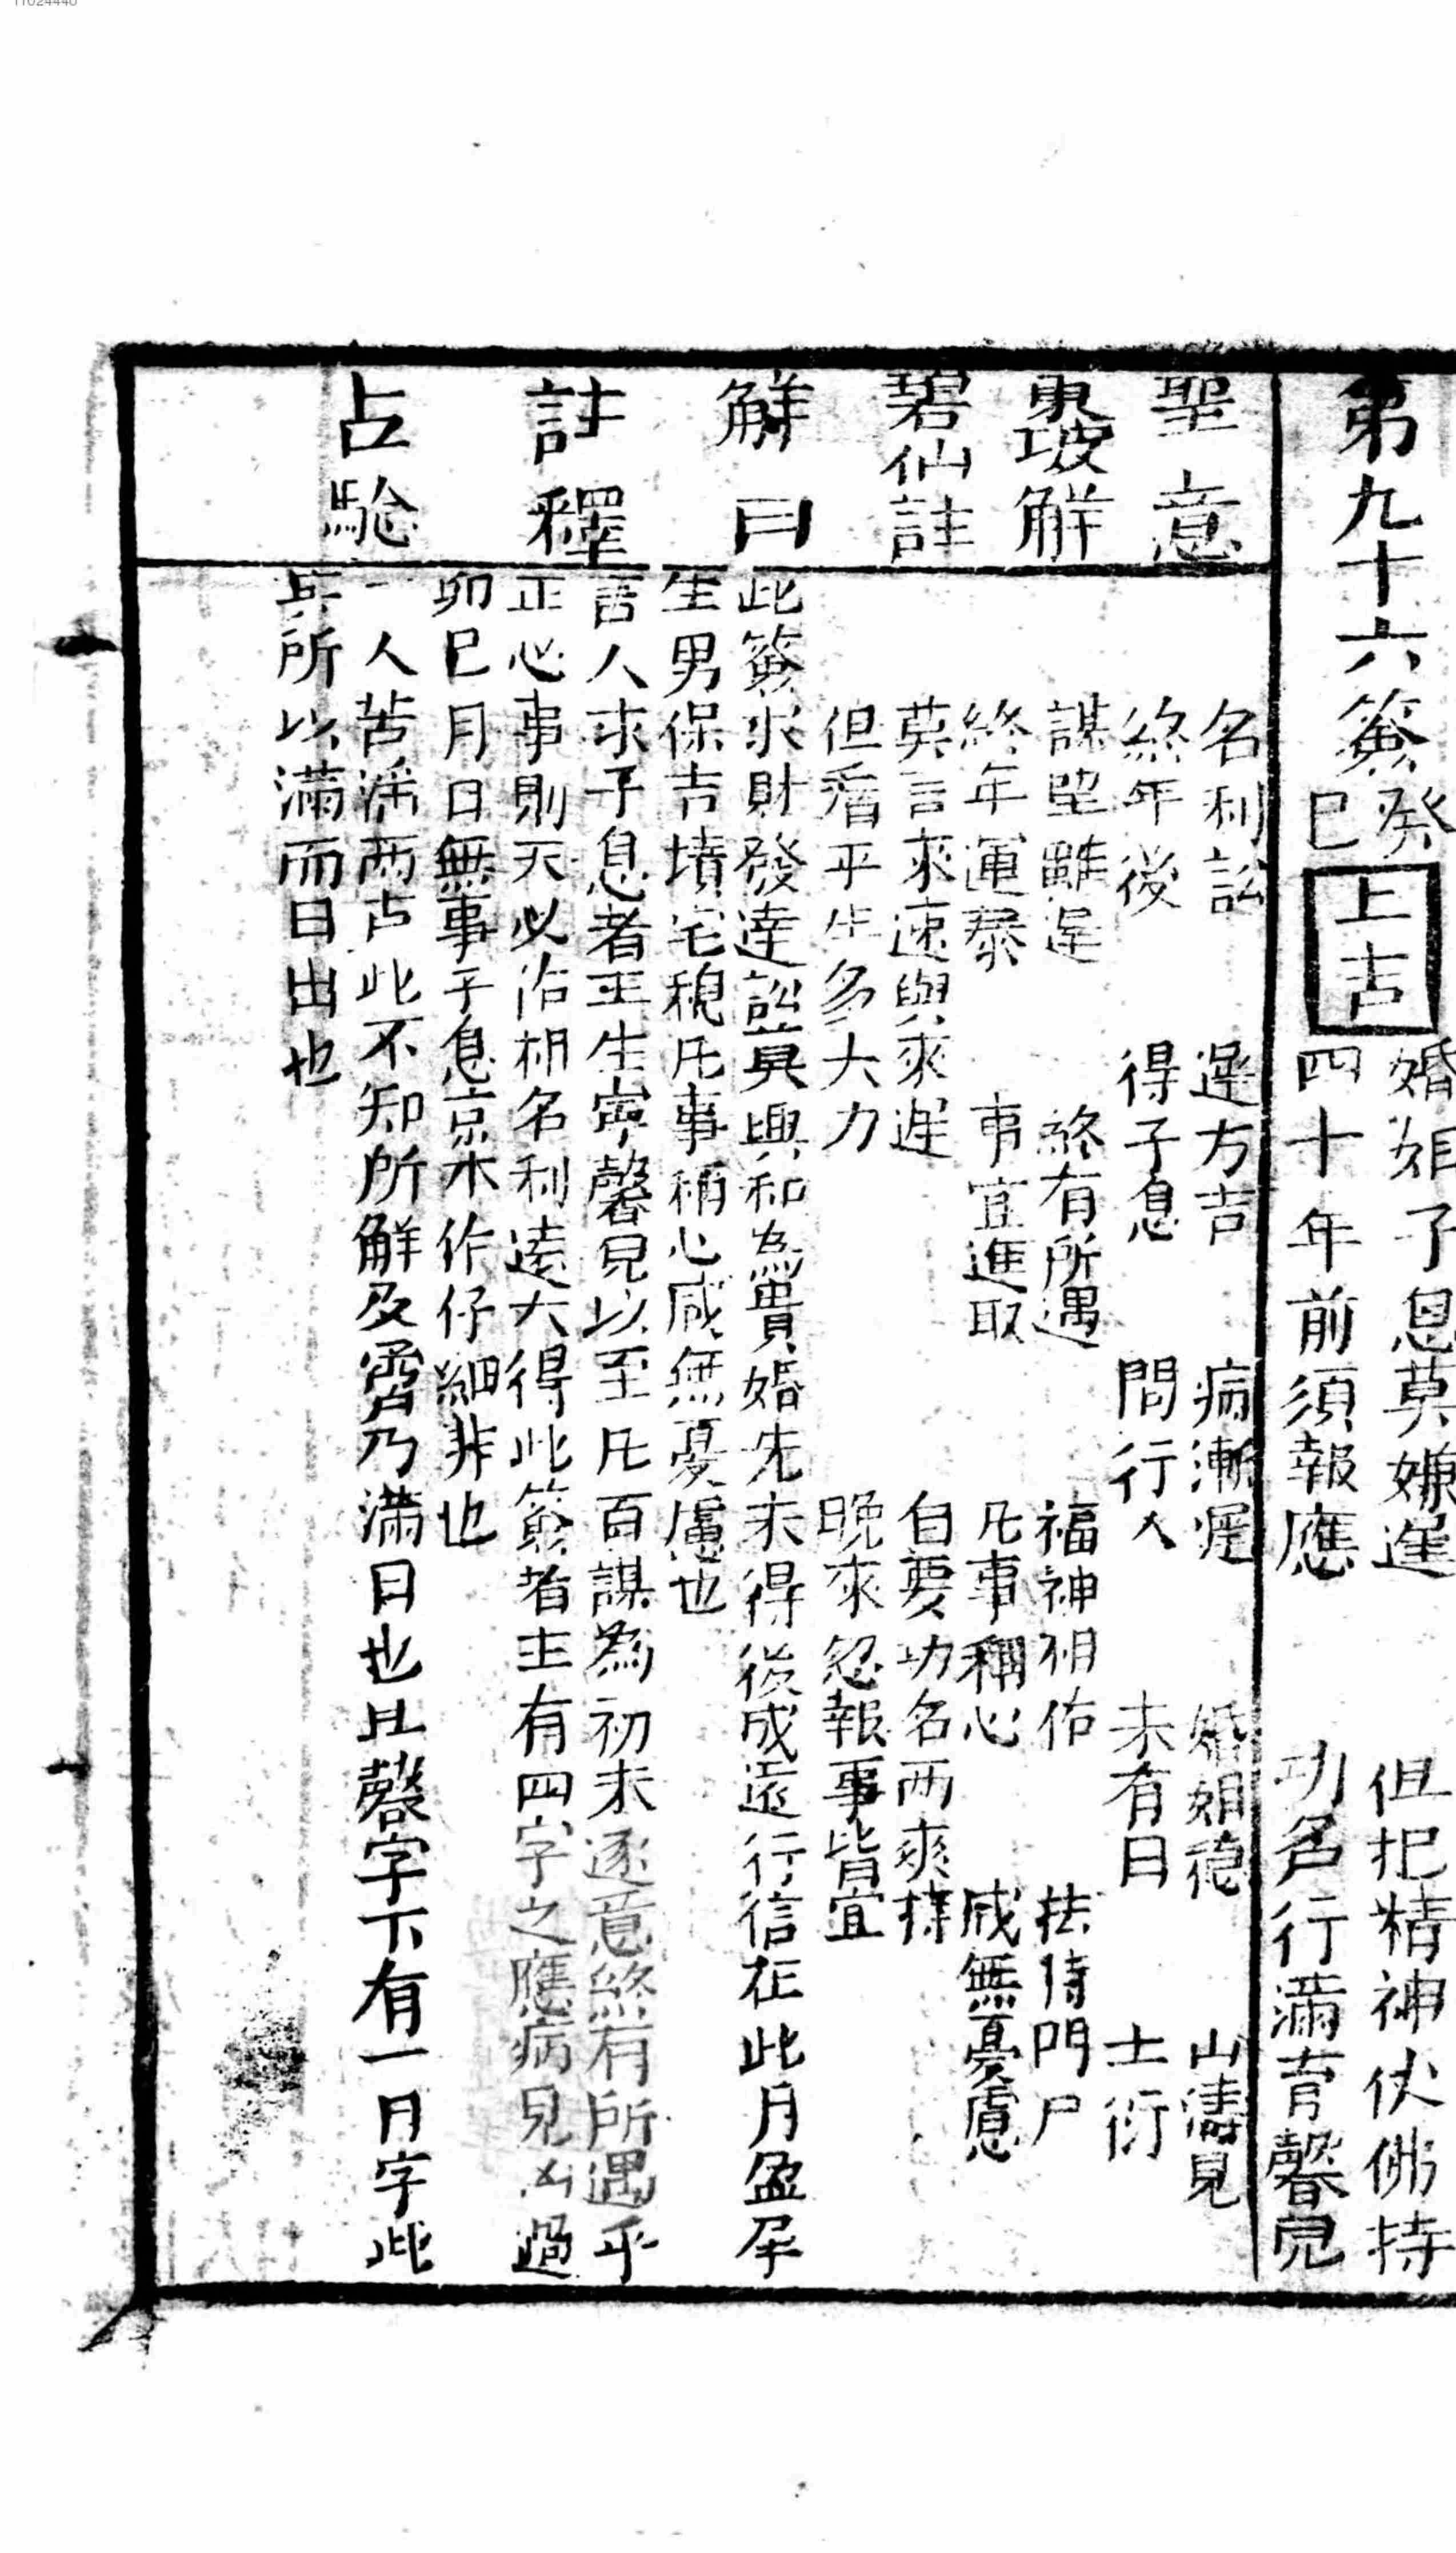 第九十六簽癸巳 上吉
婚姻子息莫嫌遲 但把精神仗佛持
四十年前須報應 功名行滿育馨兒
聖意
名利訟 遲方吉 病漸遲 婚姻穩 山濤見
終年後 得子息 問行人 未有日 士衍
東坡解
謀望雖遲 終有所遇 福神相佑 扶持門戶
終年運泰 事宜進取 凡事稱心 咸無憂慮
碧仙註
莫言來速與來遲 自要功名兩來擇
但看平生多大力 晚來忽報事皆宜
解曰
此簽求財發達訟莫與和為貴婚先未得後成遠行信在此月盈孕
生男保吉墳宅稳凡事稱心咸無憂慮也
註釋
言人求子息者主生寧馨兒以至凡百謀為初未遂意終有所遇乎
正心事則天必佑相名利遠大得此簽者主有四字之應病見凶過
卯巳月日無事子息京木作仔細非也
占驗
一人苦滛雨占此不知所解及霽乃滿日也且馨字下有一日字此
其所以滿而日出也